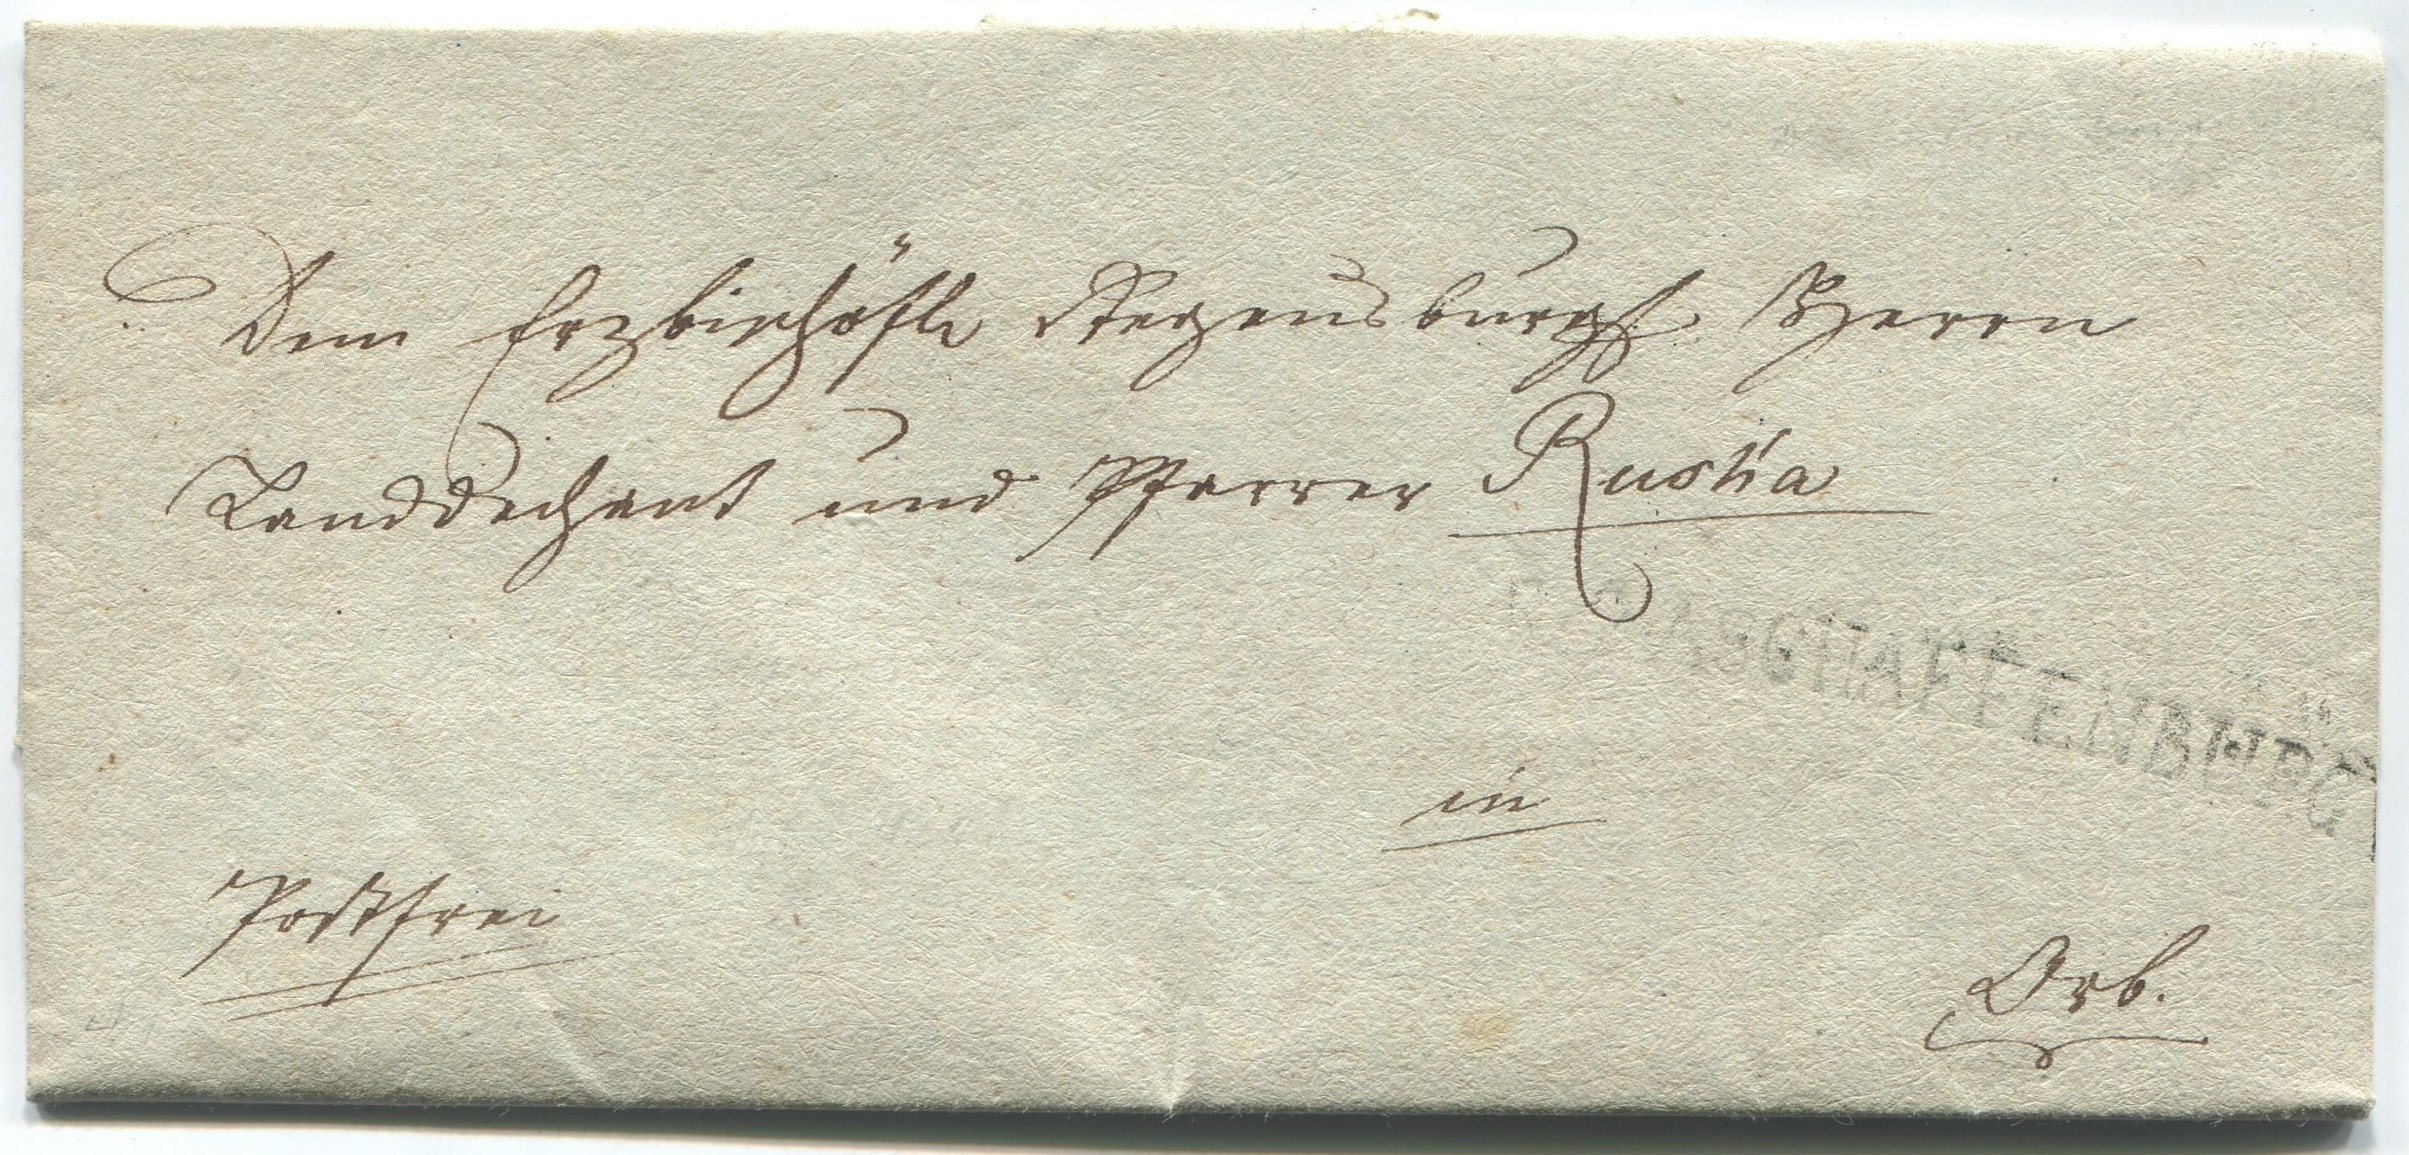 Dem Erzbischöfl Regensburgs. Herrn
Landdechant und Pfarrer Rustia
ASCHAFFENBURG
in
Postfrei
Orb.